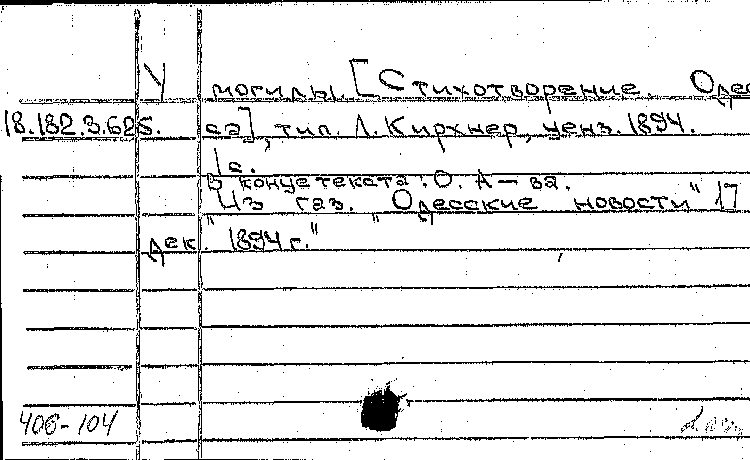 У могилы. [Стихотворение. Одес
18.182.3.625. са], тип. Л. Кирхнер, ценз. 1894.
1с.
В конце текста: О. А—ва.
Из газ. "Одесские новости" 17
дек. "1894 г."
406-104